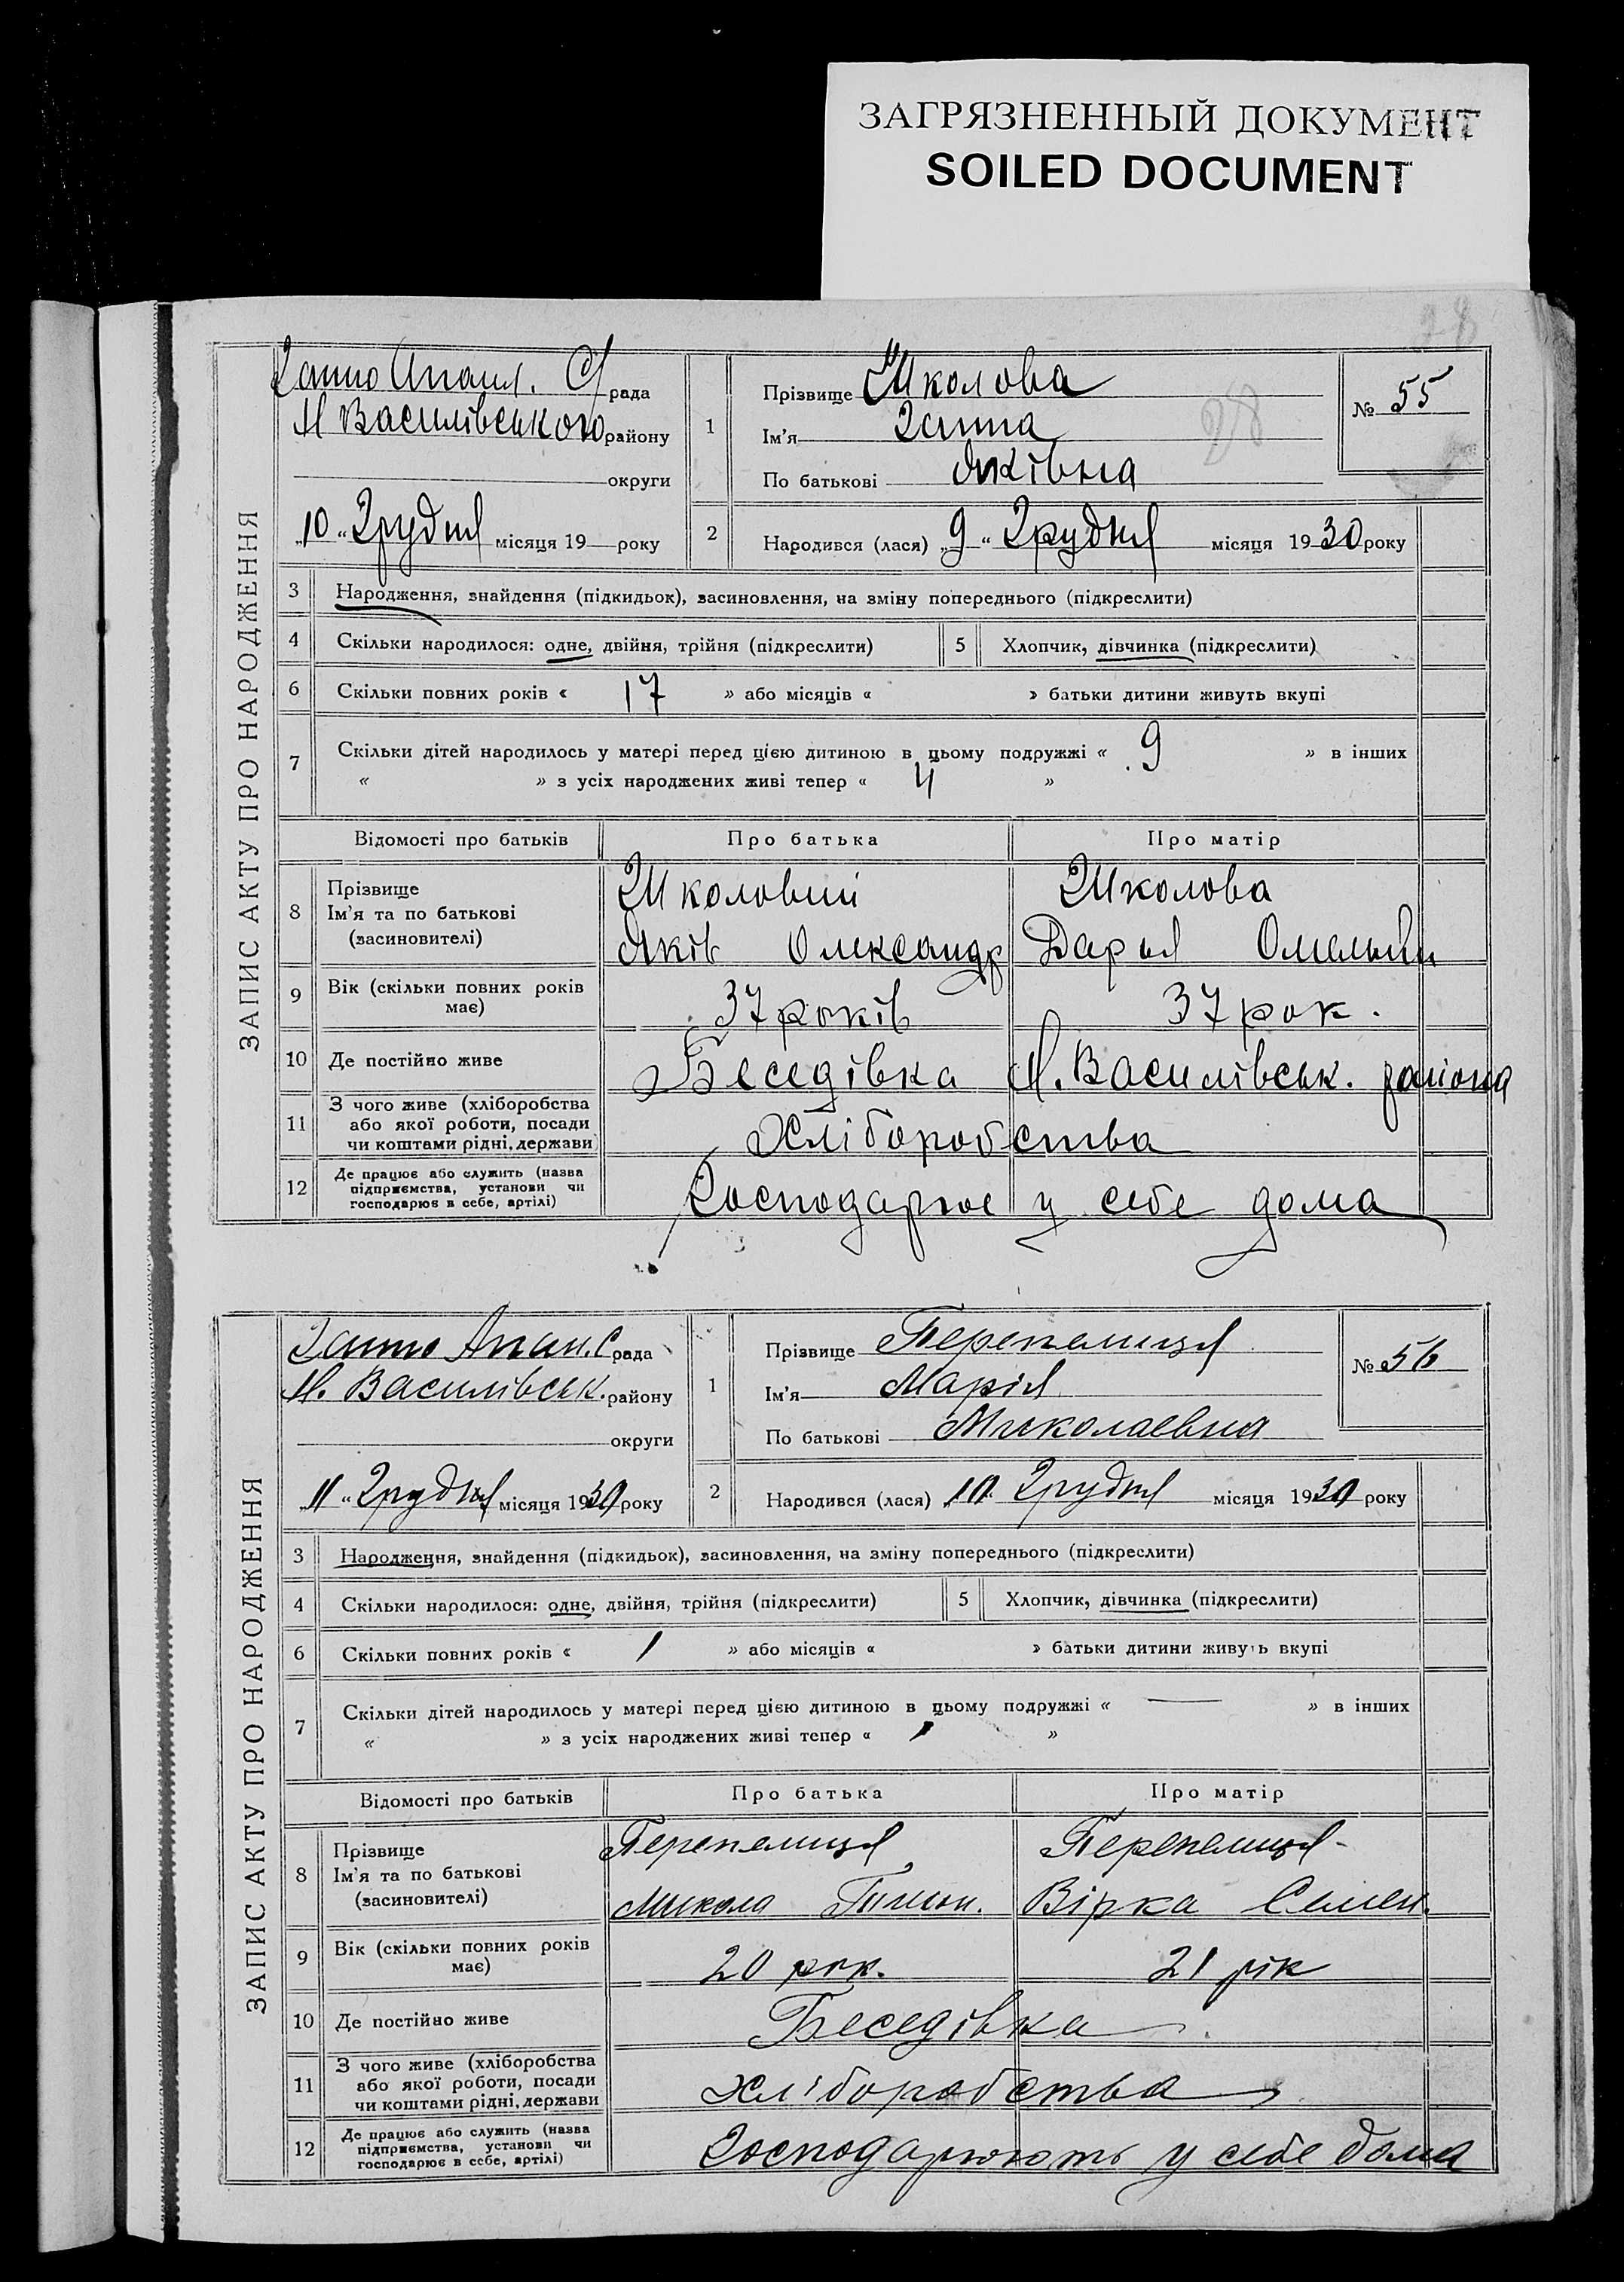 ЗАГРЯЗНЕННЫЙ ДОКУМЕНТ
SOILED DOCUMENT
28
ЗАПИС АКТУ ПРО НАРОДЖЕННЯ
Ганно С/рада
Н Василівського району
округи
„10" Грудня місяця 19 року
1
Прізвище Школова
Ім'я Ганна
По батькові Яківна
№ 55
2
Народився (лася) „9" Грудня місяця 1930 року
3 Народження, знайдення (підкидьок), засиновлення, на зміну попереднього (підкреслити)
4 Скільки народилося: одне, двійня, трійня (підкреслити) 5 Хлопчик, дівчинка (підкреслити)
6 Скільки повних років « 17 » або місяців « » батьки дитини живуть вкупі
7 Скільки дітей народилось у матері перед цією дитиною в цьому подружжі « 9 » в інших
« » з усіх народжених живі тепер « 4 »
Відомості про батьків Про батька Про матір
8 Прізвище Школовий Школова
Ім'я та по батькові
(засиновителі) Яків Олександр Дарья
9 Вік (скільки повних років має) 37 років 37 рок.
10 Де постійно живе Беседівка Н. Василівськ. района
11 З чого живе (хліборобства
або якої роботи, посади
чи коштами рідні, держави) Хліборобства
12 Де працює або служить (назва
підприємства, установи чи
господарює в себе, артілі) Господарює у себе дома
ЗАПИС АКТУ ПРО НАРОДЖЕННЯ
Ганно Апан. С рада
Н. Василівськ. району
округи
„11" Грудня місяця 1930 року
1
Прізвище Перепелиця
Ім'я Марія
По батькові Миколаевна
№ 56
2
Народився (лася) „10" Грудня місяця 1930 року
3 Народження, знайдення (підкидьок), засиновлення, на зміну попереднього (підкреслити)
4 Скільки народилося: одне, двійня, трійня (підкреслити) 5 Хлопчик, дівчинка (підкреслити)
6 Скільки повних років « 1 » або місяців « » батьки дитини живуть вкупі
7 Скільки дітей народилось у матері перед цією дитиною в цьому подружжі « — » в інших
« » з усіх народжених живі тепер « 1 »
Відомості про батьків Про батька Про матір
8 Прізвище Перепелиця Перепелиця
Ім'я та по батькові
(засиновителі) Микола Вірка Семен.
9 Вік (скільки повних років має) 20 рок. 21 рік
10 Де постійно живе Беседівка
11 З чого живе (хліборобства
або якої роботи, посади
чи коштами рідні, держави Хліборобства
12 Де працює або служить (назва
підприємства, установи чи
господарює в себе, артілі) Господарюють у себе дома